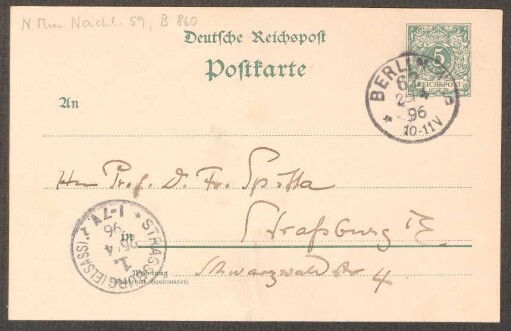 N. Mus. Nachl. 59, B 860
Deutsche Reichspost
Postkarte
5
REICHSPOST
BERLIN
62
96
10-11V
An
Herrn Prof. D. Fr. Spitta
in Straßburg i/E.
Schwarzwald Str 4
Wohnung
STRASSBURG (ELSASS)
1.
4
96